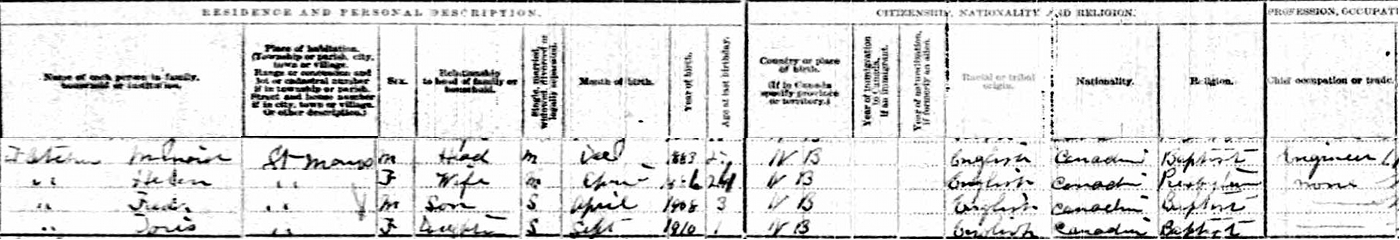 RESIDENCE AND PERSONAL DESCRIPTION. CITIZENSHIP, NATIONALITY AND RELIGION. PROFESSION, OCCUPATI
Name of each person in family, household or institution.
Place of habitation. (Township or parish, city, town or village. Range or concession and lot or cadastral number if in township or parish. Street and house number if in city, town or village. Or other description.)
Sex.
Relationship to head of family or household.
Single, married, widowed, divorced or legally separated.
Month of birth.
Year of birth.
Age at last birthday.
Country or place of birth. (If in Canada specify province or territory.)
Year of immigration to Canada, if an immigrant.
Year of naturalization, if formerly an alien.
Racial or tribal origin.
Nationality.
Religion.
Chief occupation or trade.
St M Head M 1883 N B English Canadian Baptist Engineer
" Helen " F Wife M 24 N B English Canadian none
" Fred " M Son S April 1908 3 N B English Canadian Baptist
" Doris " F S Sept 1910 1 N B English Canadian Baptist